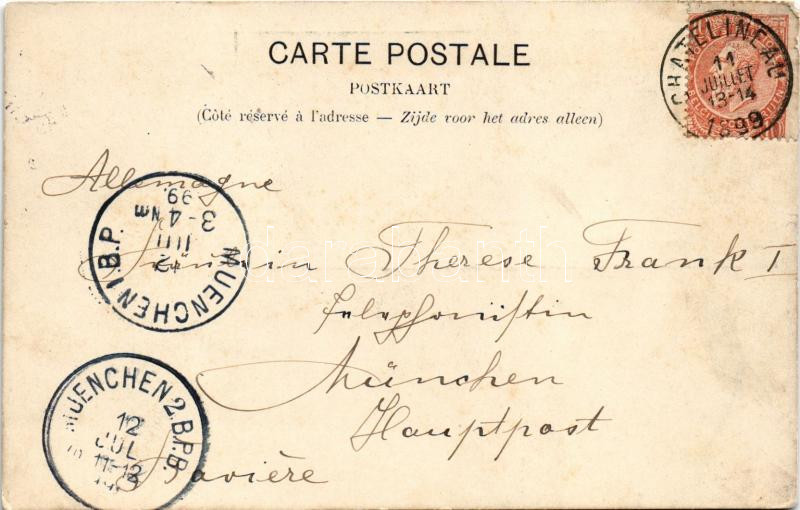 CARTE POSTALE
POSTKAART
(Côté réservé à l'adresse — Zijde voor het adres alleen)
CHATELINEAU
11
JUILLET
13-14
1899
Allemagne
MUENCHEN 1.B.P.
JUL
3-4 Nm
99.
Fräulein Therese Frank I
Telephonistin
München
Hauptpost
Bavière
MUENCHEN 2.B.P.B.
12
JUL
11-12
darabanth